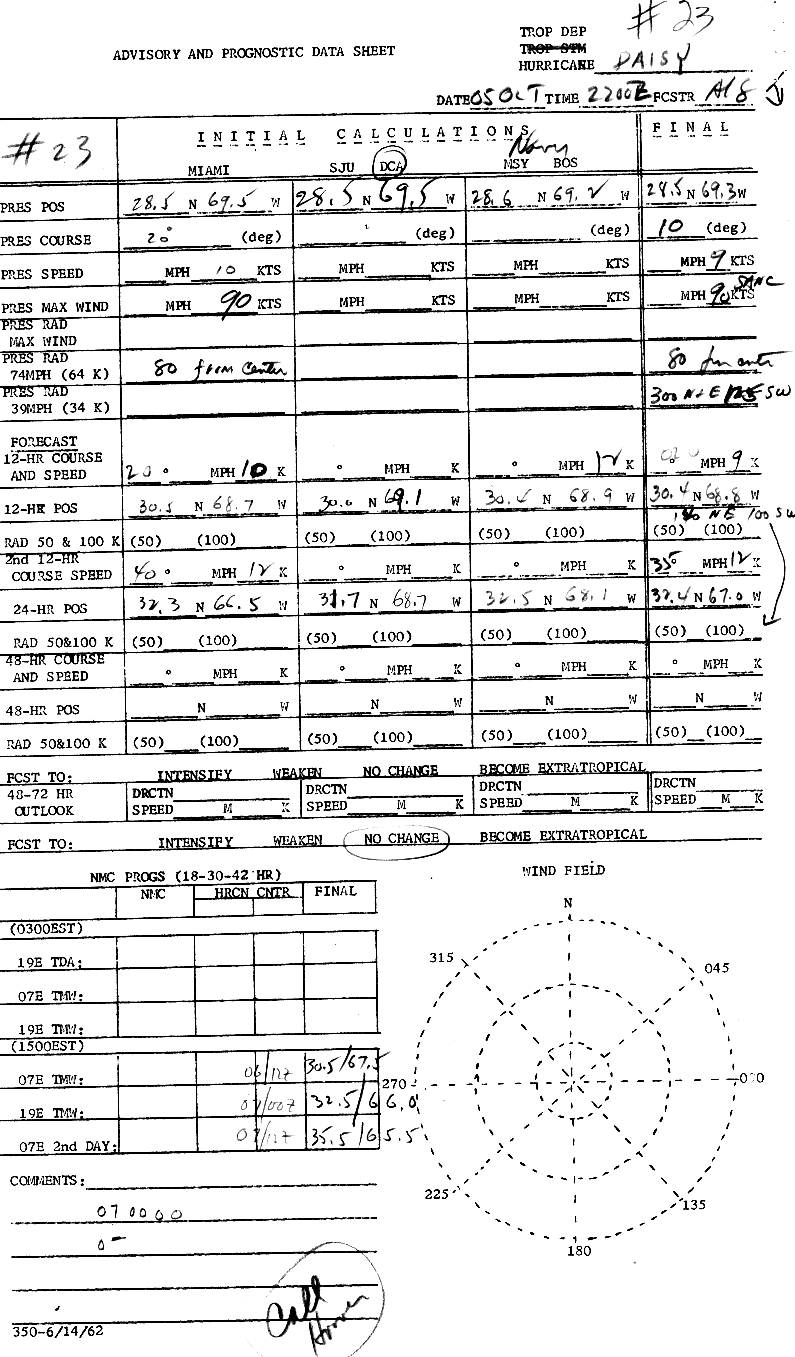 # 23
TROP DEP
ADVISORY AND PROGNOSTIC DATA SHEET TROP STM
HURRICANE DAISY
DATE 05 OCT TIME 2200Z FCSTR
# 23 INITIAL CALCULATIONS FINAL
Navy
MIAMI SJU DCA MSY BOS
PRES POS 28.5 N 69.5 W 28.5 N 69.5 W 28.6 N 69.2 W 28.5 N 69.3 W
PRES COURSE 20° (deg) (deg) (deg) 10 (deg)
PRES SPEED MPH 10 KTS MPH KTS MPH KTS MPH 9 KTS
PRES MAX WIND MPH 90 KTS MPH KTS MPH KTS MPH 90 KTS
PRES RAD
MAX WIND
PRES RAD
74MPH (64 K) 80 from center 80 fm cntr
PRES RAD
39MPH (34 K) 300 N+E 125 SW
FORECAST
12-HR COURSE
AND SPEED 20° MPH 10 K ° MPH K ° MPH 12 K ° MPH 9 K
12-HR POS 30.5 N 68.7 W 30.0 N 69.1 W 30.4 N 68.9 W 30.4 N 68.8 W
NE 100 SW
RAD 50 & 100 K (50) (100) (50) (100) (50) (100) (50) (100)
2nd 12-HR
COURSE SPEED 40° MPH 12 K ° MPH K ° MPH K 35° MPH 12 K
24-HR POS 32.3 N 66.5 W 31.7 N 68.7 W 32.5 N 68.1 W 32.4 N 67.0 W
RAD 50&100 K (50) (100) (50) (100) (50) (100) (50) (100)
48-HR COURSE
AND SPEED ° MPH K ° MPH K ° MPH K ° MPH K
48-HR POS N W N W N W N W
RAD 50&100 K (50) (100) (50) (100) (50) (100) (50) (100)
FCST TO: INTENSIFY WEAKEN NO CHANGE BECOME EXTRATROPICAL
48-72 HR DRCTN DRCTN DRCTN DRCTN
OUTLOOK SPEED M K SPEED M K SPEED M K SPEED M K
FCST TO: INTENSIFY WEAKEN NO CHANGE BECOME EXTRATROPICAL
NMC PROGS (18-30-42 HR)
NMC HRCN CNTR FINAL
(0300EST)
19E TDA:
07E TMW:
19E TMW:
(1500EST)
07E TMW: 06/12Z 30.5/67.5
19E TMW: 07/00Z 32.5/66.0
07E 2nd DAY: 07/12Z 35.5/65.5
COMMENTS:
070000
0-
Call
350-6/14/62
WIND FIELD
N
315 045
270 090
225 135
180